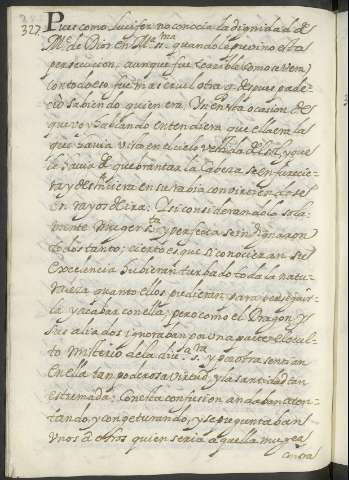 327 Pues como Lucifer no conocia la dignidad de
Me. de Dios en Ma. SSma. quando le previno esta
persecucion, aunque fue terrible como a verá
con todo eso fue mas cruel otra q despues pade-
cio sabiendo quien era. Y si en esta ocasion de
que voy hablando entendiera que ella era la
que havia visto en el cielo vestida del sol, y que
le havia de quebrantar la cabeza se enfurecie-
ra y deshiciera en su rabia convirtiendose
en rayos de ira. Y si considerandola sola-
mente muger sta. y perfecta se indignaron
todos tanto; cierto es que si conocieran su
excelencia hubieran turbado toda la natu-
raleza quanto ellos pudieran para perseguir-
la y acabar con ella; pero como el Dragon y
sus aliados ignoraban por una parte el ocul-
to misterio de la diva. sra. y por otra sentian
en ella tan poderosa virtud, y la santidad tan
estremada: Con esta confusion andaban aten-
tando, y congeturando, y se preguntaban
unos a otros quien seria aquella muger
contra